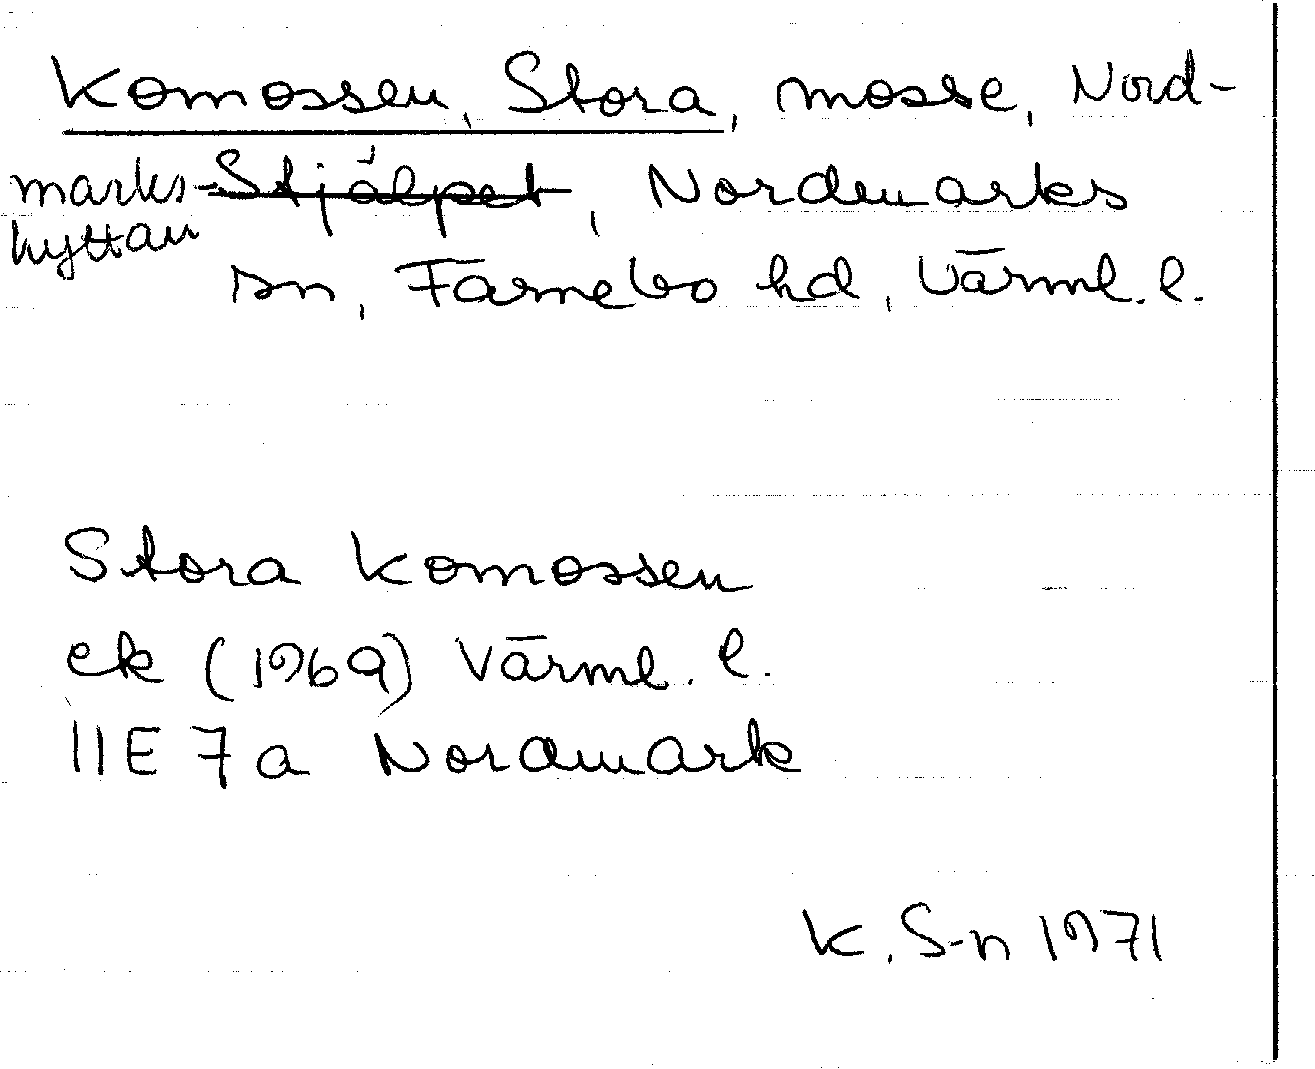 Komossen, Stora, mosse, Nord-
marks- Stjälpet, Nordmarks
hyttan
sn, Färnebo hd, Värml. l.
Stora Komossen
ek (1969) Värml. l.
11E 7a Nordmark
K. S-n 1971